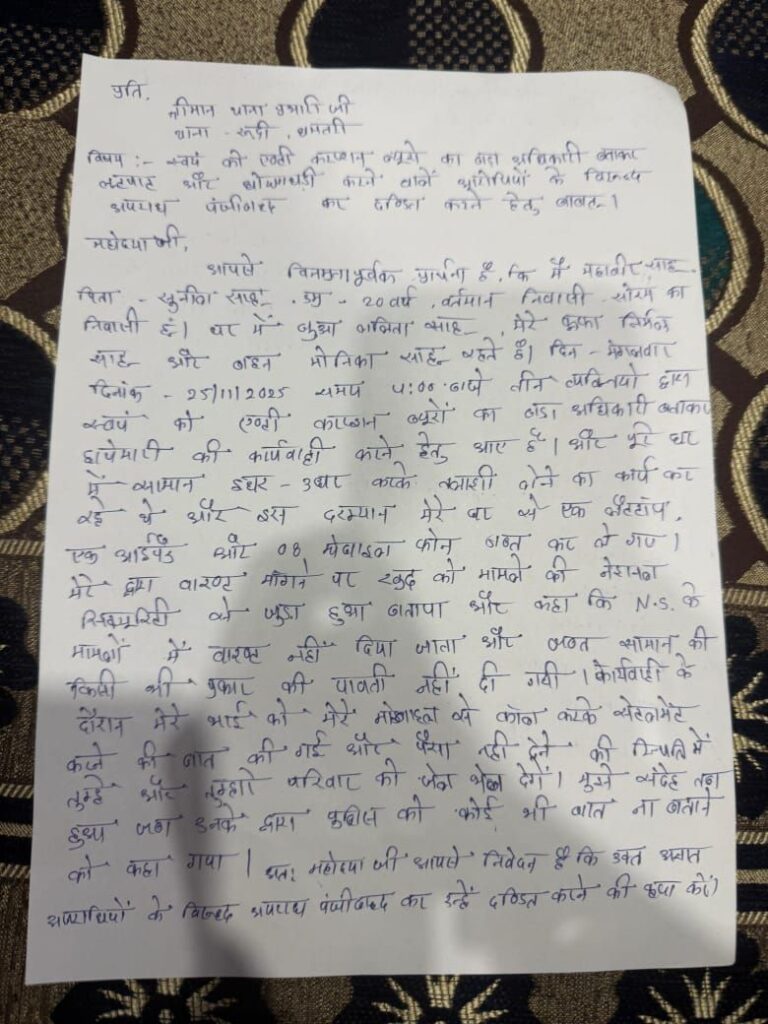 प्रति,
श्रीमान थाना प्रभारी जी
थाना - रूद्री, धमतरी
विषय :- स्वयं को एण्टी करप्शन ब्यूरो का बड़ा अधिकारी बताकर
लूटपाट और धोखाधड़ी करने वाले आरोपियों के विरूध्द
अपराध पंजीबध्द कर दण्डित करने हेतु बाबत्।
महोदया जी,
आपसे विनम्रतापूर्वक प्रार्थना है, कि मैं महावीर साहू
पिता - सुनील साहू, उम्र - 20 वर्ष, वर्तमान निवासी सोरम का
निवासी हूँ। घर में बुआ ललिता साहू, मेरे फूफा निर्मल
साहू और बहन मोनिका साहू रहते हैं। दिन - मंगलवार
दिनांक - 25/11/2025 समय 4:00 बजे तीन व्यक्तियो द्वारा
स्वयं को एण्टी करप्शन ब्यूरों का बड़ा अधिकारी बताकर
छापेमारी की कार्यवाही करने हेतु आए है। और पूरे घर
में सामान इधर - उधर करके तलाशी लेने का कार्य कर
रहे थे और इस दरम्यान मेरे घर से एक लैपटॉप,
एक आईपैड और 08 मोबाइल फोन जब्त कर ले गए।
मेरे द्वारा वारण्ट मांगने पर खुद को मामले की नेशनल
सिक्यूरिटी से जुड़ा हुआ बताया और कहा कि N.S. के
मामलों में वारण्ट नहीं दिया जाता और जब्त सामान की
किसी भी प्रकार की पावती नहीं दी गयी। कार्यवाही के
दौरान मेरे भाई को मेरे मोबाइल से कॉल करके सेटलमेंट
करने की बात की गई और पैसा नही देने की स्थिति में
तुम्हे और तुम्हारे परिवार को जेल भेज देगें। मुझे संदेह तब
हुआ जब इनके द्वारा पुलिस को कोई भी बात ना बताने
को कहा गया। अतः महोदया जी आपसे निवेदन है कि उक्त अज्ञात
अपराधियों के विरूध्द अपराध पंजीबध्द कर इन्हें दण्डित करने की कृपा करें।